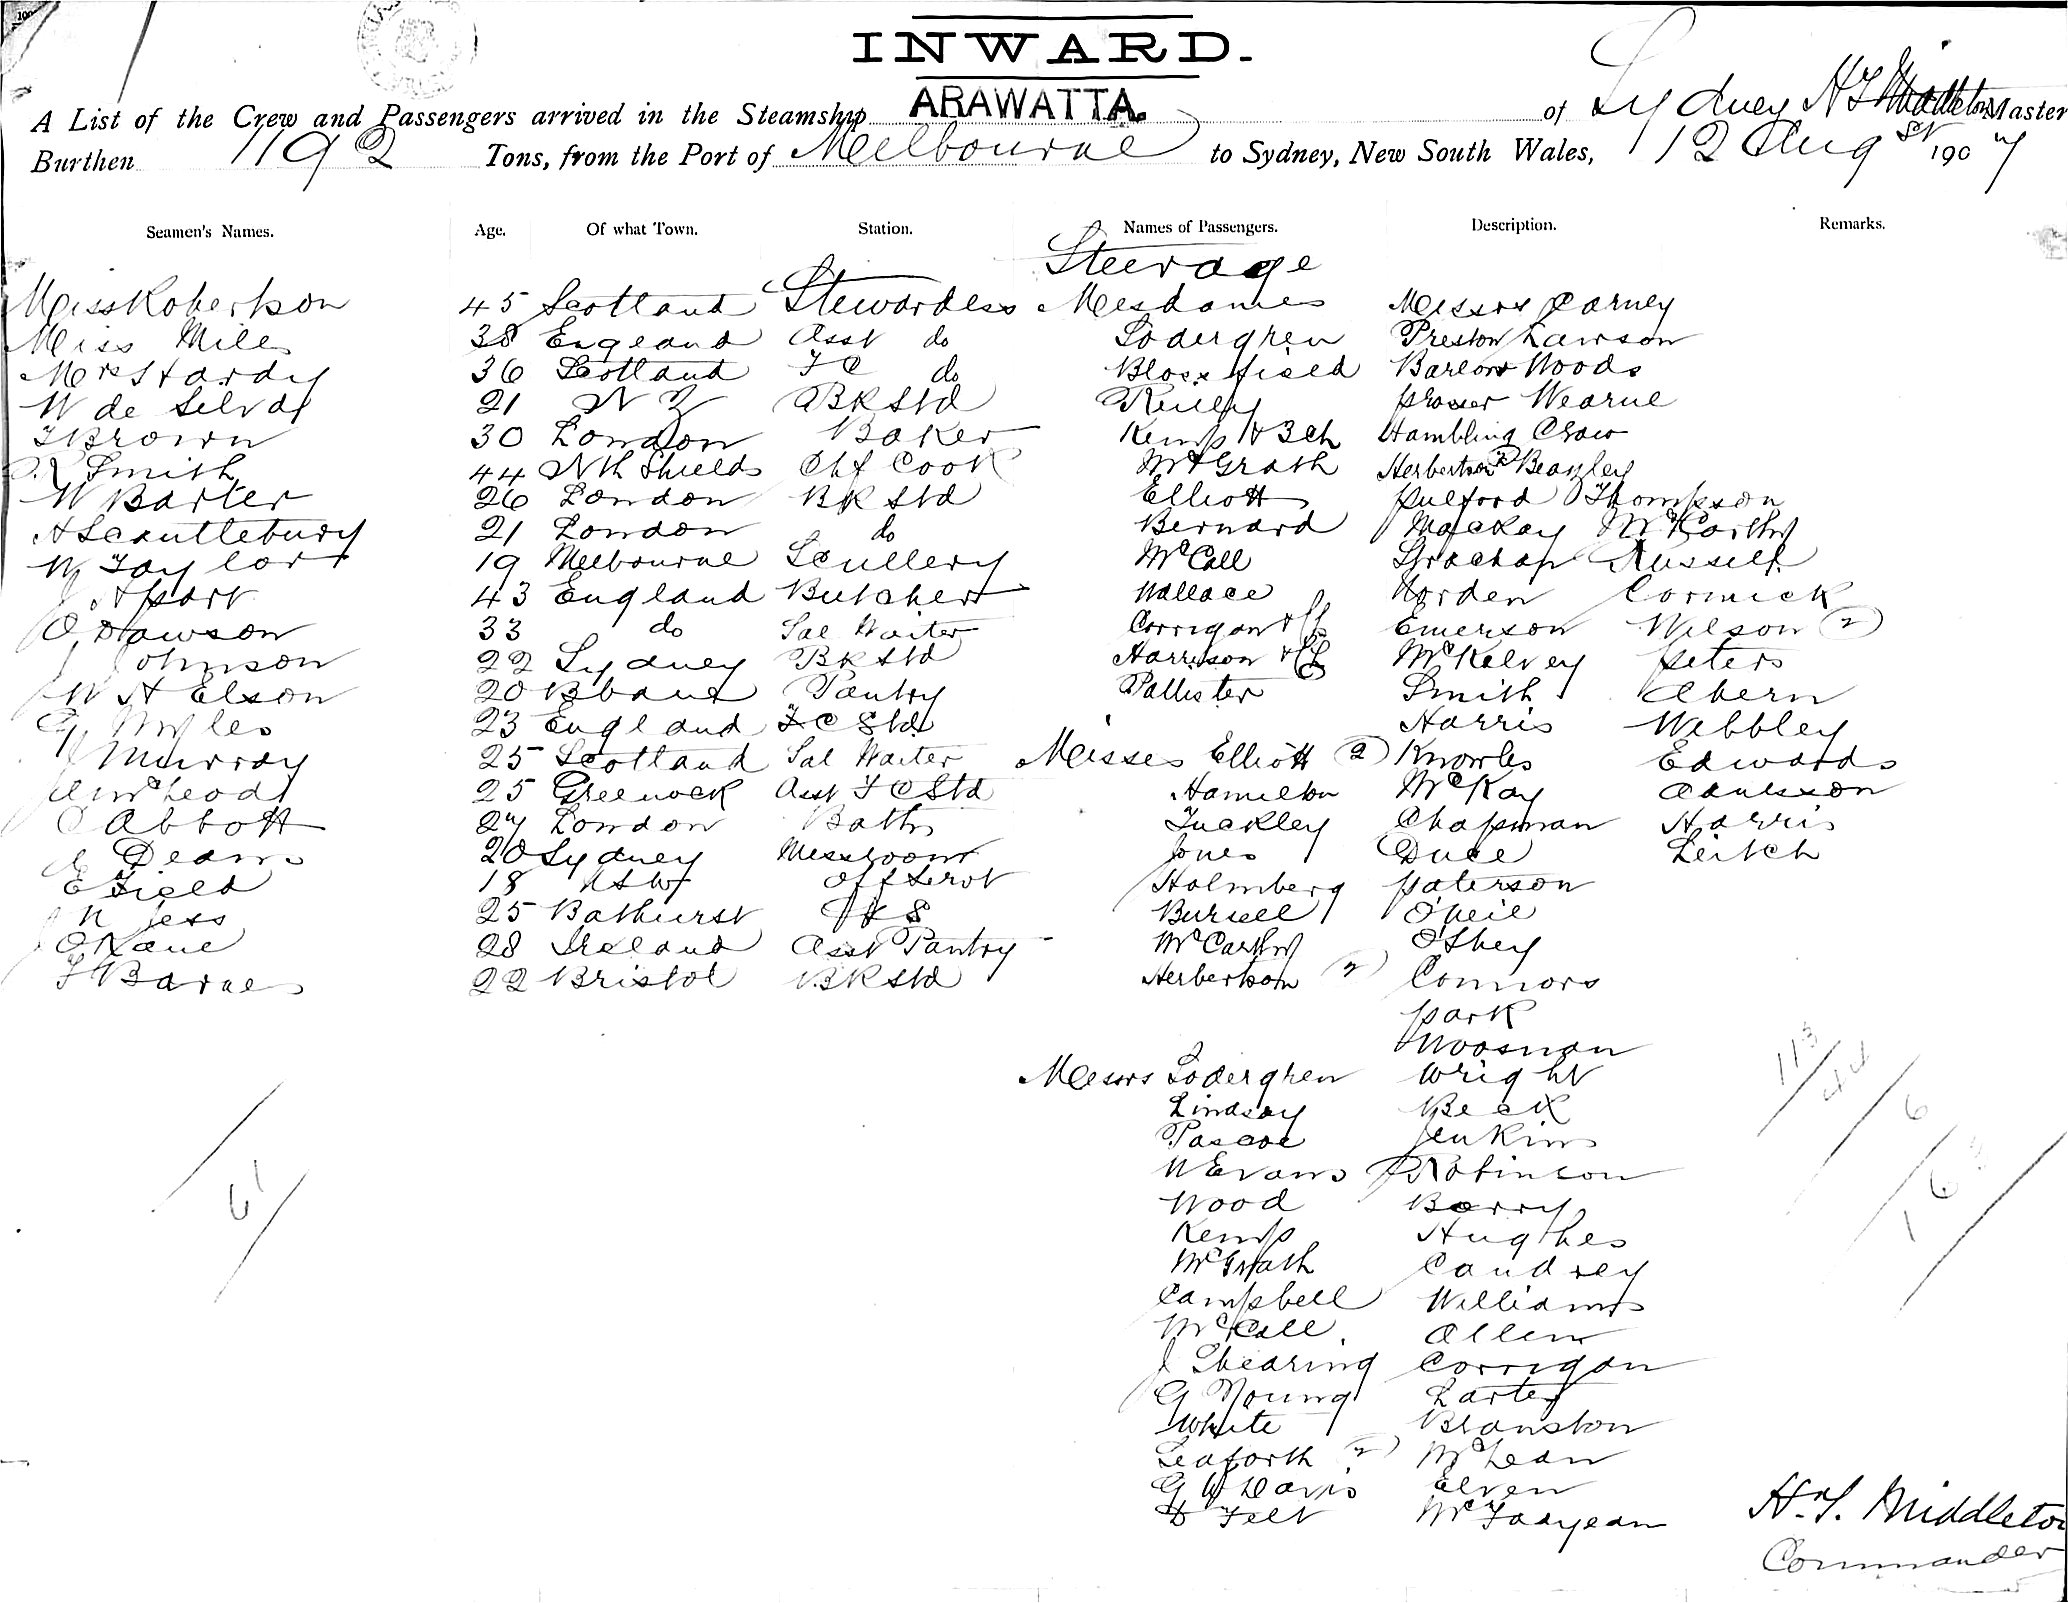 INWARD.
A List of the Crew and Passengers arrived in the Steamship ARAWATTA. of Sydney H T Middleton Master
Burthen 1192 Tons, from the Port of Melbourne to Sydney, New South Wales, 12 Augst 1907
Seamen's Names. Age. Of what Town. Station. Names of Passengers. Description. Remarks.
Steerage
Miss Robertson 45 Scotland Stewardess Mesdames Messrs Carney
Miss Miles 38 England Asst do Sodergren Preston Lawson
Mrs Hardy 36 Scotland FC do Bloxsfield Barlow Woods
W de Silva 21 N Z BK Std Reiley prosser Wearne
F Brown 30 London Baker Kemp & 3 ch Hambling Chaw
Smith 44 Nth Shields Chf Cook McGrath Herbertson Beazley
W Barter 26 London BK Std Elliott pulford Thompson
A Scouttlebury 21 London do Bernard Mackay McCarthy
W Taylor 19 Melbourne Scullery McCall Strachan Russell
A port 43 England Butcher Wallace Horden Cormick
O Dawson 33 do Sal Waiter Corrigan & ch Emerson Wilson (2)
J Johnson 22 Sydney BK Std Harrison & ch McKelvey peters
W H Elson 20 Bbane Pantry Pallister Smith Ahern
G Myles 23 England F C Std Harris Webbley
J Murray 25 Scotland Sal Waiter Misses Elliott (2) Knowles Edwards
J McLeod 25 Greenock Asst F C Std Hamilton McKay Paulsson
C Abbott 27 London Baths Tuckley Chapman Harris
E Deans 20 Sydney Messroom Jones Duce Leitch
E Field 18 NSW Off Servt Holmberg paterson
N Jess 25 Bathurst Bursell O'Neil
O Kane 28 Ireland Asst Pantry McCarthy O'Shey
F Barnes 22 Bristol BK Std Herbertson (2) Connors
park
Moosnan
Messrs Sodergren Wright
Lindsay Beck
Pascoe Jenkins
W Evans Robinson
Wood Barry
Kemp Hughes
McGrath Caudrey
Campbell Williams
McCall Allen
J Shearing Corrigan
G Young Larter
White Branston
Seaforth (2) McLean
G W Davis Elven
Felt McFadyean
113
44
6
163
61
H. T. Middleton
Commander